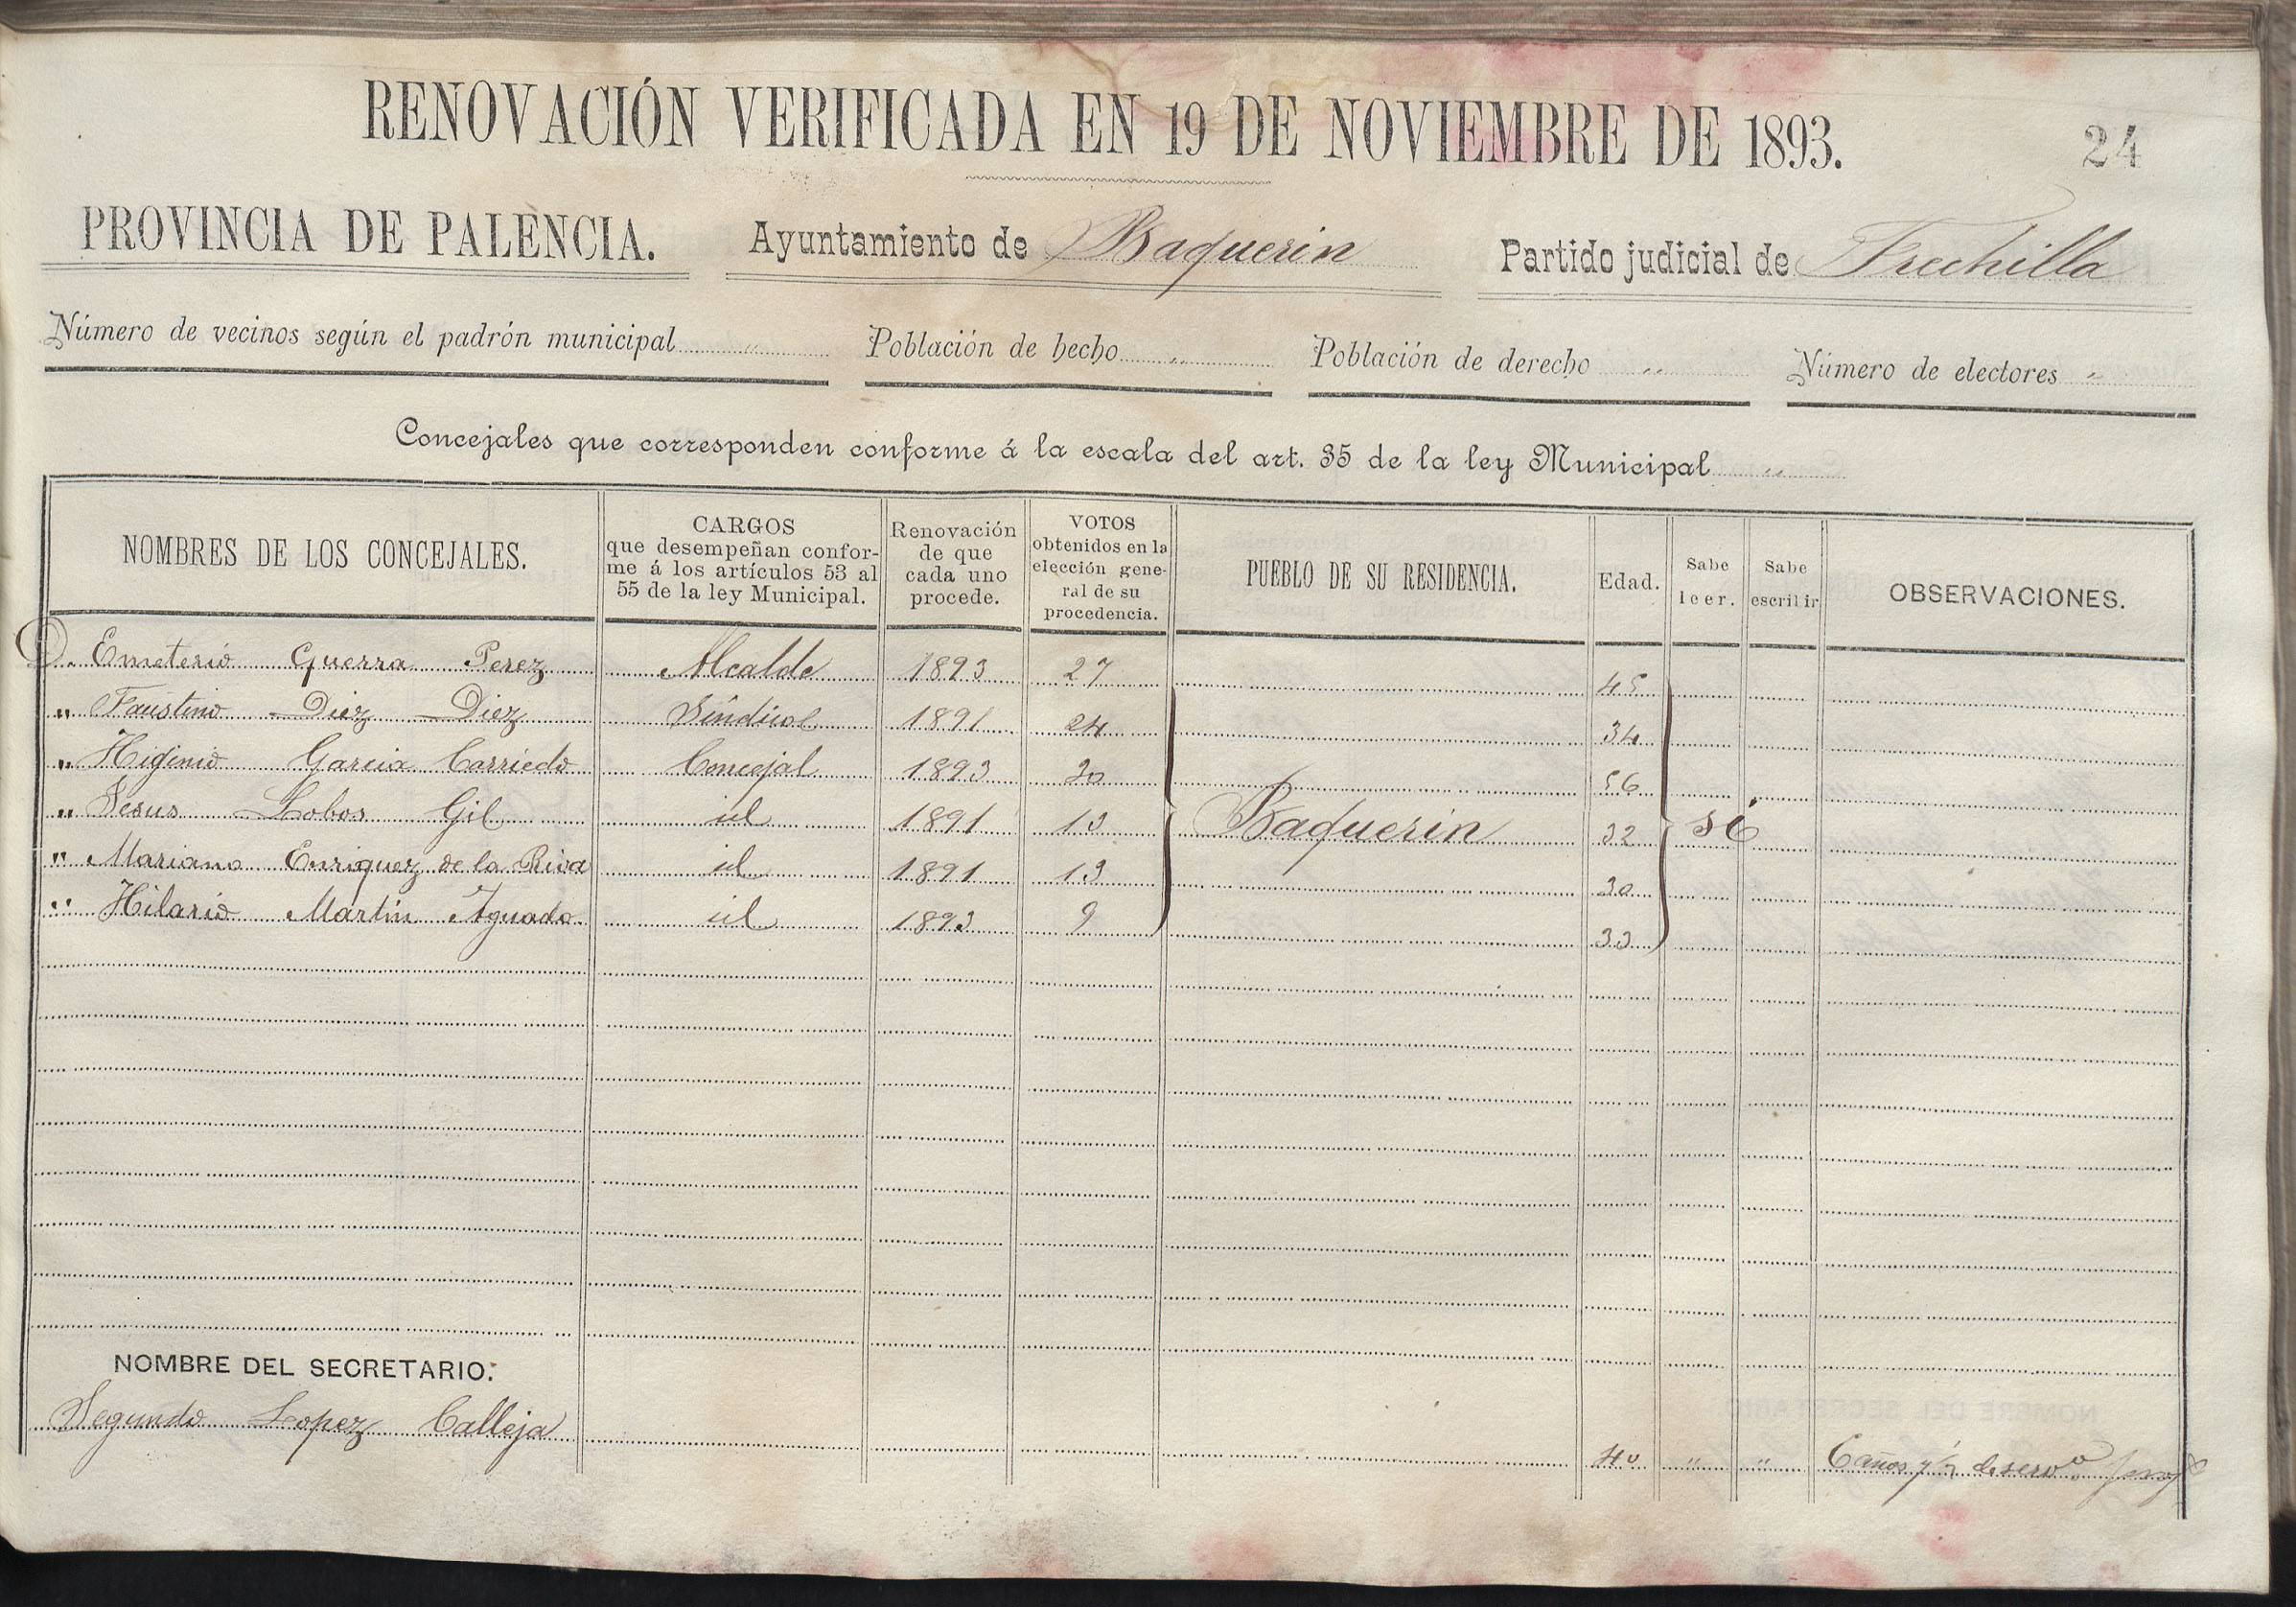 RENOVACIÓN VERIFICADA EN 19 DE NOVIEMBRE DE 1893. 24
PROVINCIA DE PALENCIA. Ayuntamiento de Baquerin Partido judicial de Frechilla
Número de vecinos según el padrón municipal " Población de hecho " Población de derecho " Número de electores "
Concejales que corresponden conforme á la escala del art. 35 de la ley Municipal "
NOMBRES DE LOS CONCEJALES. CARGOS que desempeñan conforme á los artículos 53 al 55 de la ley Municipal. Renovación de que cada uno procede. VOTOS obtenidos en la elección general de su procedencia. PUEBLO DE SU RESIDENCIA. Edad. Sabe leer. Sabe escribir OBSERVACIONES.
D. Emeterio Guerra Perez Alcalde 1893 27 45
" Faustino Diez Diez Síndico 1891 24 34
" Higinio Garcia Carriedo Concejal 1893 20 56
" Jesus Lobos Gil id 1891 13 Baquerin 32 sí
" Mariano Enriquez de la Riva id 1891 13 30
" Hilario Martín Aguado id 1893 9 33
NOMBRE DEL SECRETARIO.
Segundo Lopez Calleja 40 " " 6 años y ½ de serv.º